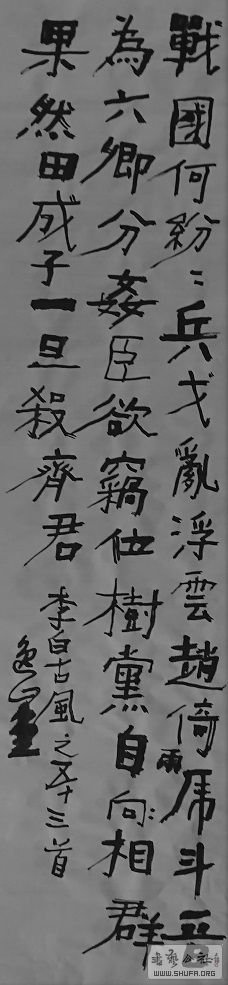 戰國何紛〻兵戈亂浮雲趙倚兩虎斗晉
為六卿分姦臣欲竊位樹黨自向相群
果然田成子一旦殺齊君 李白古風之五十三首
WWW.SHUFA.ORG